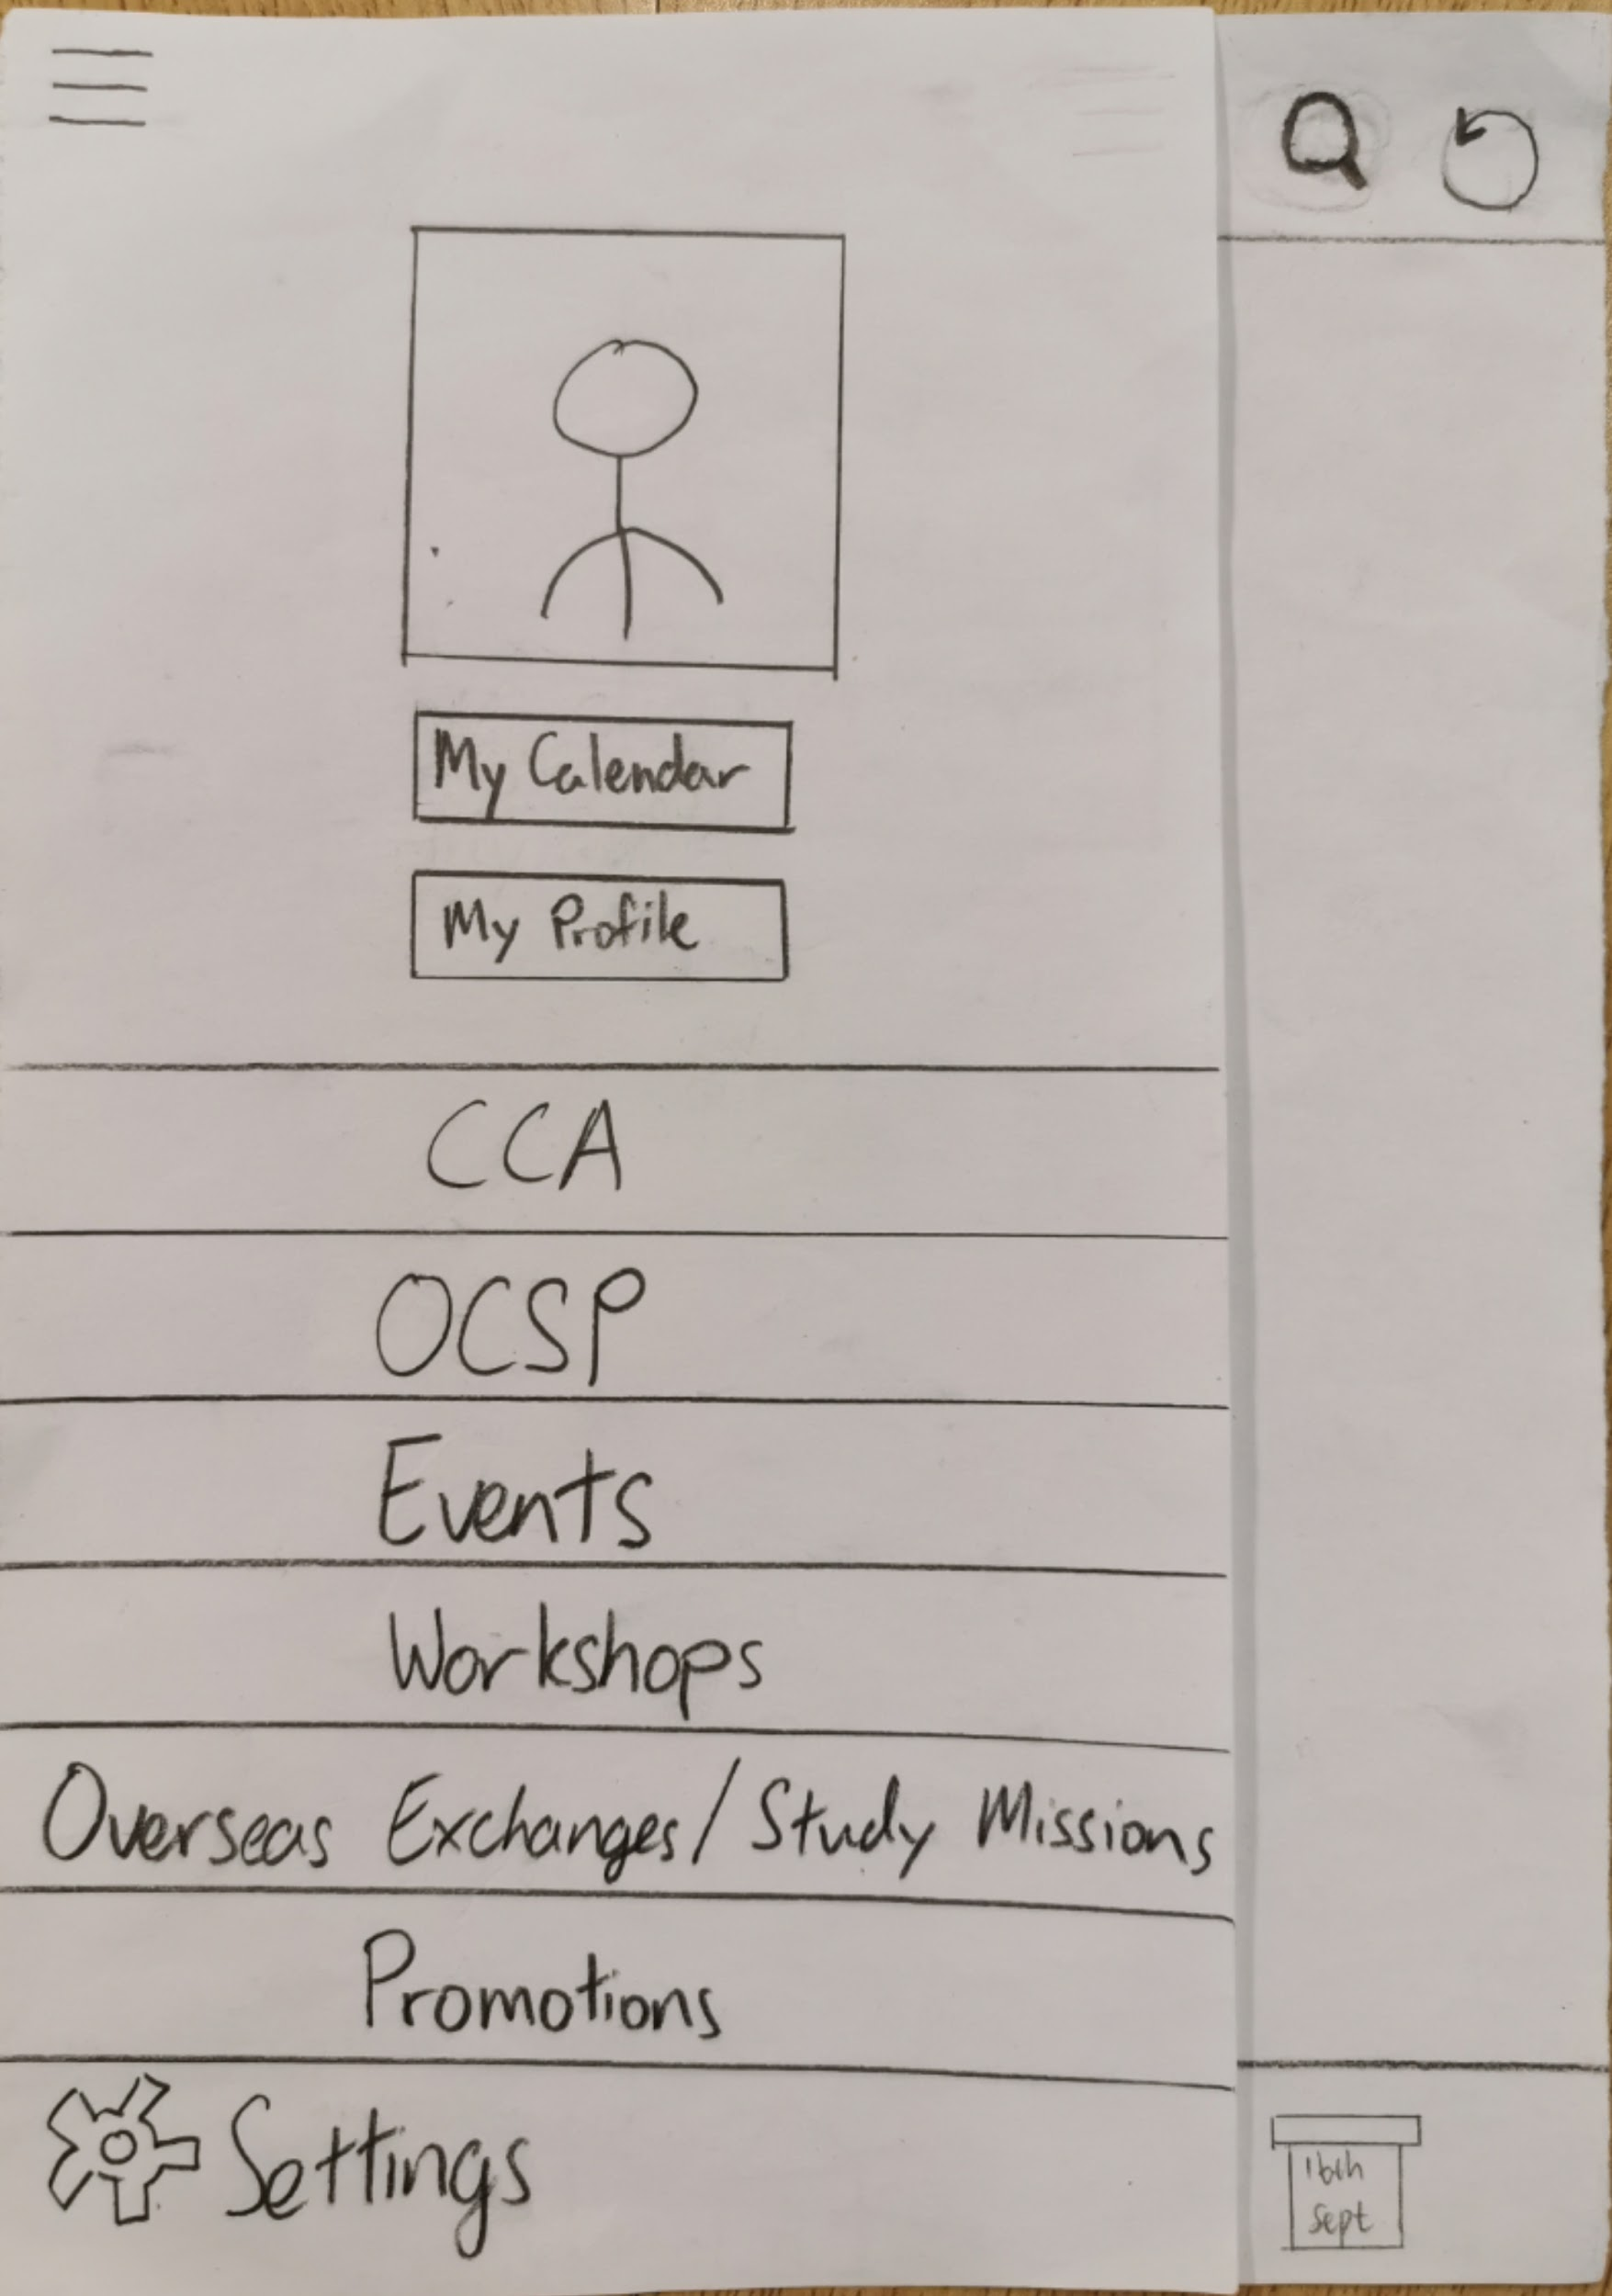 My Calendar
My Profile
CCA
OCSP
Events
Workshops
Overseas Exchanges/Study Missions
Promotions
Settings
16th
Sept